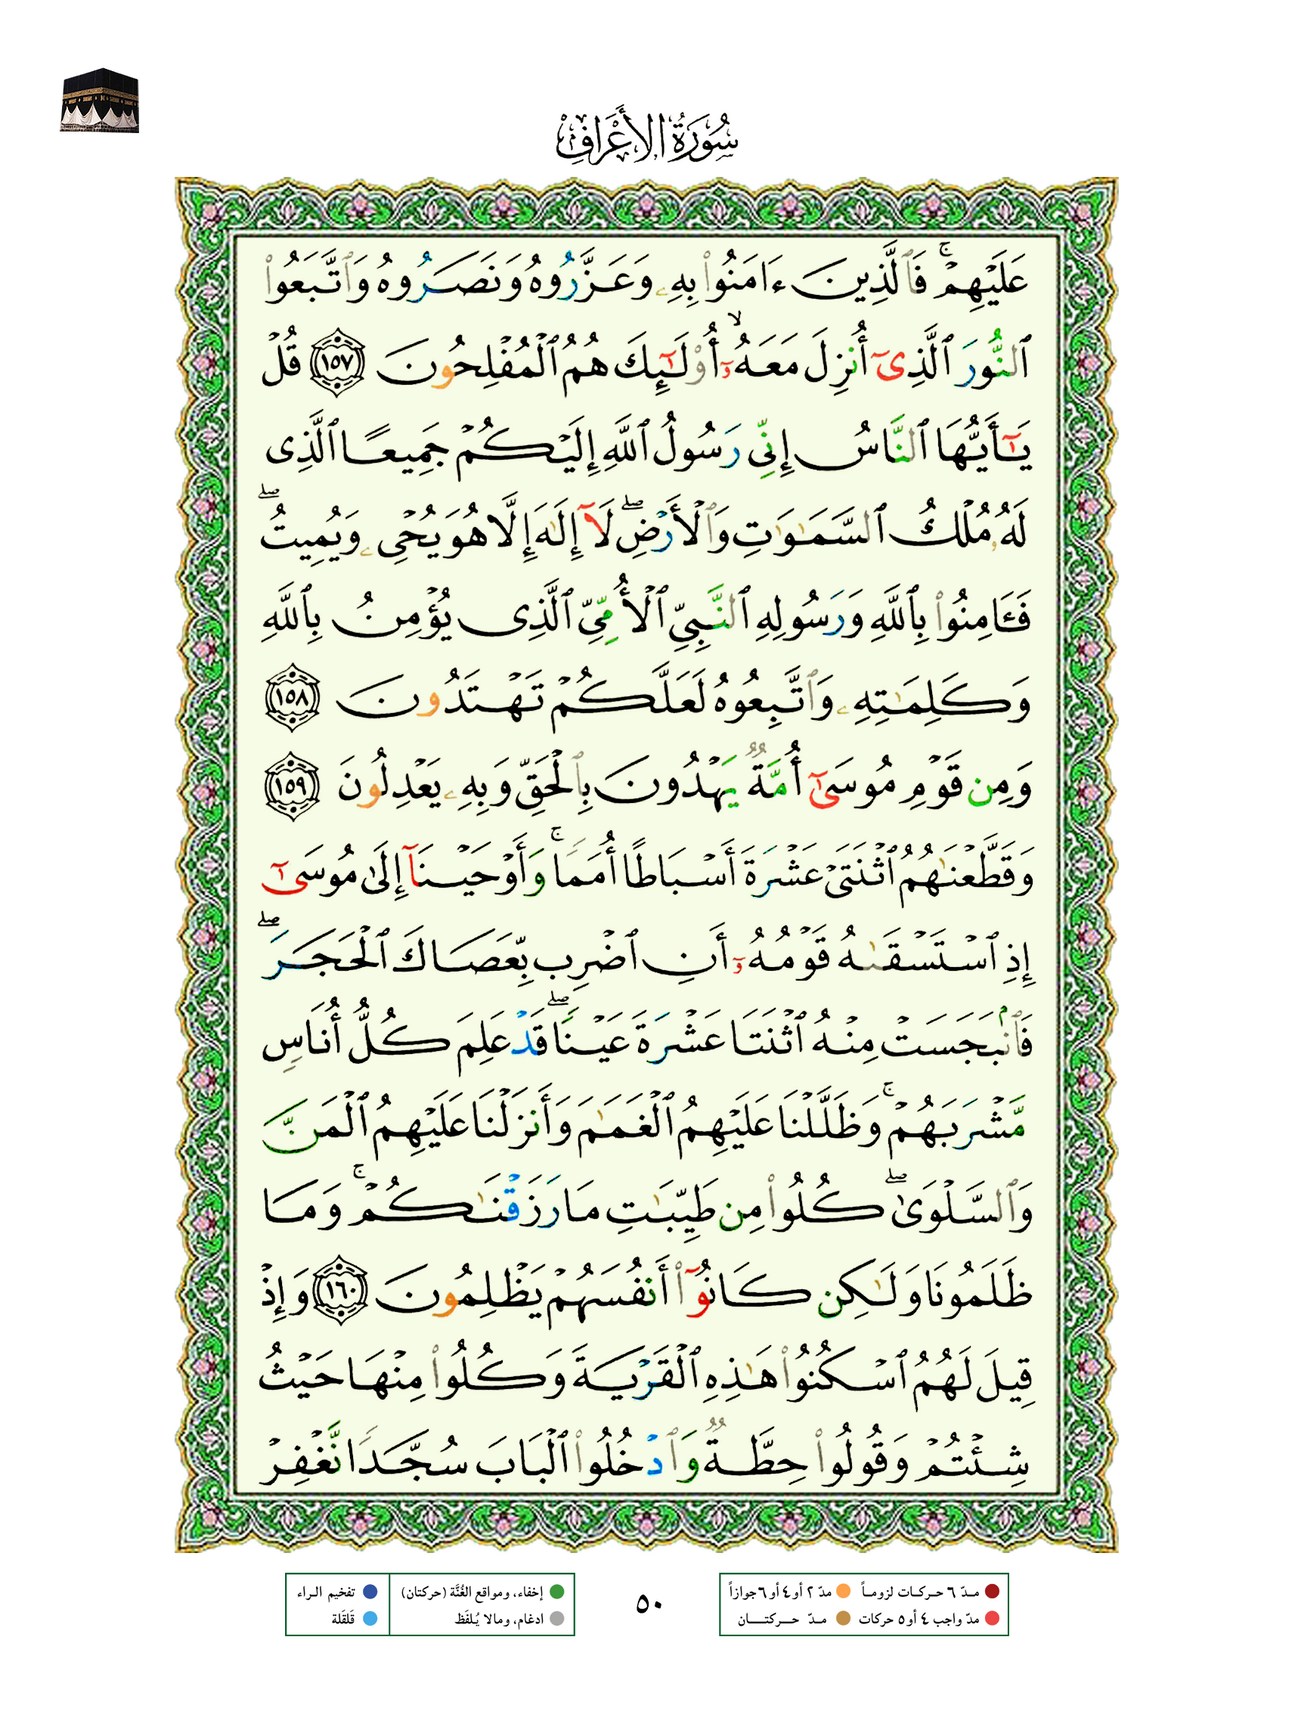 سُورَةُ الأَعْرَافِ
عَلَيْهِمْۚ فَٱلَّذِينَ ءَامَنُوا۟ بِهِۦ وَعَزَّرُوهُ وَنَصَرُوهُ وَٱتَّبَعُوا۟
ٱلنُّورَ ٱلَّذِىٓ أُنزِلَ مَعَهُۥٓۙ أُو۟لَـٰٓئِكَ هُمُ ٱلْمُفْلِحُونَ ١٥٧ قُلْ
يَـٰٓأَيُّهَا ٱلنَّاسُ إِنِّى رَسُولُ ٱللَّهِ إِلَيْكُمْ جَمِيعًا ٱلَّذِى
لَهُۥ مُلْكُ ٱلسَّمَـٰوَٰتِ وَٱلْأَرْضِۖ لَآ إِلَـٰهَ إِلَّا هُوَ يُحْىِۦ وَيُمِيتُۖ
فَـَٔامِنُوا۟ بِٱللَّهِ وَرَسُولِهِ ٱلنَّبِىِّ ٱلْأُمِّىِّ ٱلَّذِى يُؤْمِنُ بِٱللَّهِ
وَكَلِمَـٰتِهِۦ وَٱتَّبِعُوهُ لَعَلَّكُمْ تَهْتَدُونَ ١٥٨
وَمِن قَوْمِ مُوسَىٰٓ أُمَّةٌ يَهْدُونَ بِٱلْحَقِّ وَبِهِۦ يَعْدِلُونَ ١٥٩
وَقَطَّعْنَـٰهُمُ ٱثْنَتَىْ عَشْرَةَ أَسْبَاطًا أُمَمًاۚ وَأَوْحَيْنَآ إِلَىٰ مُوسَىٰٓ
إِذِ ٱسْتَسْقَىٰهُ قَوْمُهُۥٓ أَنِ ٱضْرِب بِّعَصَاكَ ٱلْحَجَرَۖ
فَٱنۢبَجَسَتْ مِنْهُ ٱثْنَتَا عَشْرَةَ عَيْنًاۖ قَدْ عَلِمَ كُلُّ أُنَاسٍ
مَّشْرَبَهُمْۚ وَظَلَّلْنَا عَلَيْهِمُ ٱلْغَمَـٰمَ وَأَنزَلْنَا عَلَيْهِمُ ٱلْمَنَّ
وَٱلسَّلْوَىٰۖ كُلُوا۟ مِن طَيِّبَـٰتِ مَا رَزَقْنَـٰكُمْۚ وَمَا
ظَلَمُونَا وَلَـٰكِن كَانُوٓا۟ أَنفُسَهُمْ يَظْلِمُونَ ١٦٠ وَإِذْ
قِيلَ لَهُمُ ٱسْكُنُوا۟ هَـٰذِهِ ٱلْقَرْيَةَ وَكُلُوا۟ مِنْهَا حَيْثُ
شِئْتُمْ وَقُولُوا۟ حِطَّةٌ وَٱدْخُلُوا۟ ٱلْبَابَ سُجَّدًا نَّغْفِرْ
مدّ ٦ حركات لزوماً مدّ ٢ أو ٤ أو ٦ جوازاً
مدّ واجب ٤ أو ٥ حركات مدّ حركتان
٥٠
إخفاء، ومواقع الغُنَّة (حركتان) تفخيم الراء
ادغام، ومالا يُلفَظ قَلقَلة